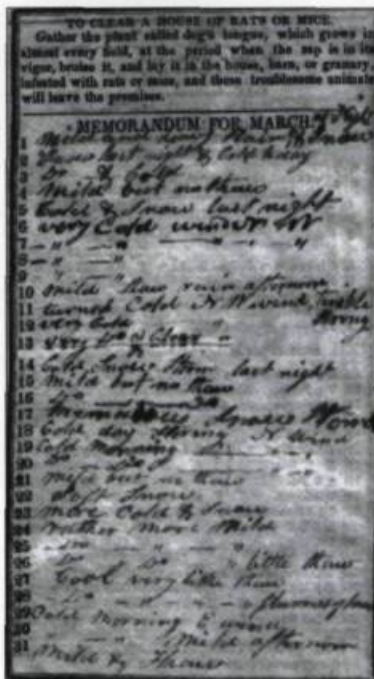 TO CLEAR A HOUSE OF RATS OR MICE.
Gather the plant called dog's tongue, which grows in
almost every field, at the period when the sap is in its
vigor, bruise it, and lay it in the house, barn, or granary,
infested with rats or mice, and those troublesome animals
will leave the premises.
MEMORANDUM FOR MARCH.
1 Mild Snow
2 Snow last night & Cold today
3 Do & Cold
4 Mild but no thaw
5 Cold & Snow last night
6 very Cold wind N W
7 " — " — " "
8 — " — "
9 " — "
10 Mild thaw rain afternoon
11 turned Cold N W wind
12 very Cold Strong
13 very Do & Clear
14 Cold Snow Storm last night
15 Mild but no thaw
16 Do
17 Snow Storm
18 Cold day Strong N wind
19 Cold Morning
20 Do
21 Mild but no thaw
22 Soft Snow
23 More Cold & Snow
24 rather more Mild
25 Do — " — "
26 Do Do " little thaw
27 Cool very little thaw
28 " — " — "
29 Cold Morning E wind
30 " — " Mild afternoon
31 Mild & Thaw